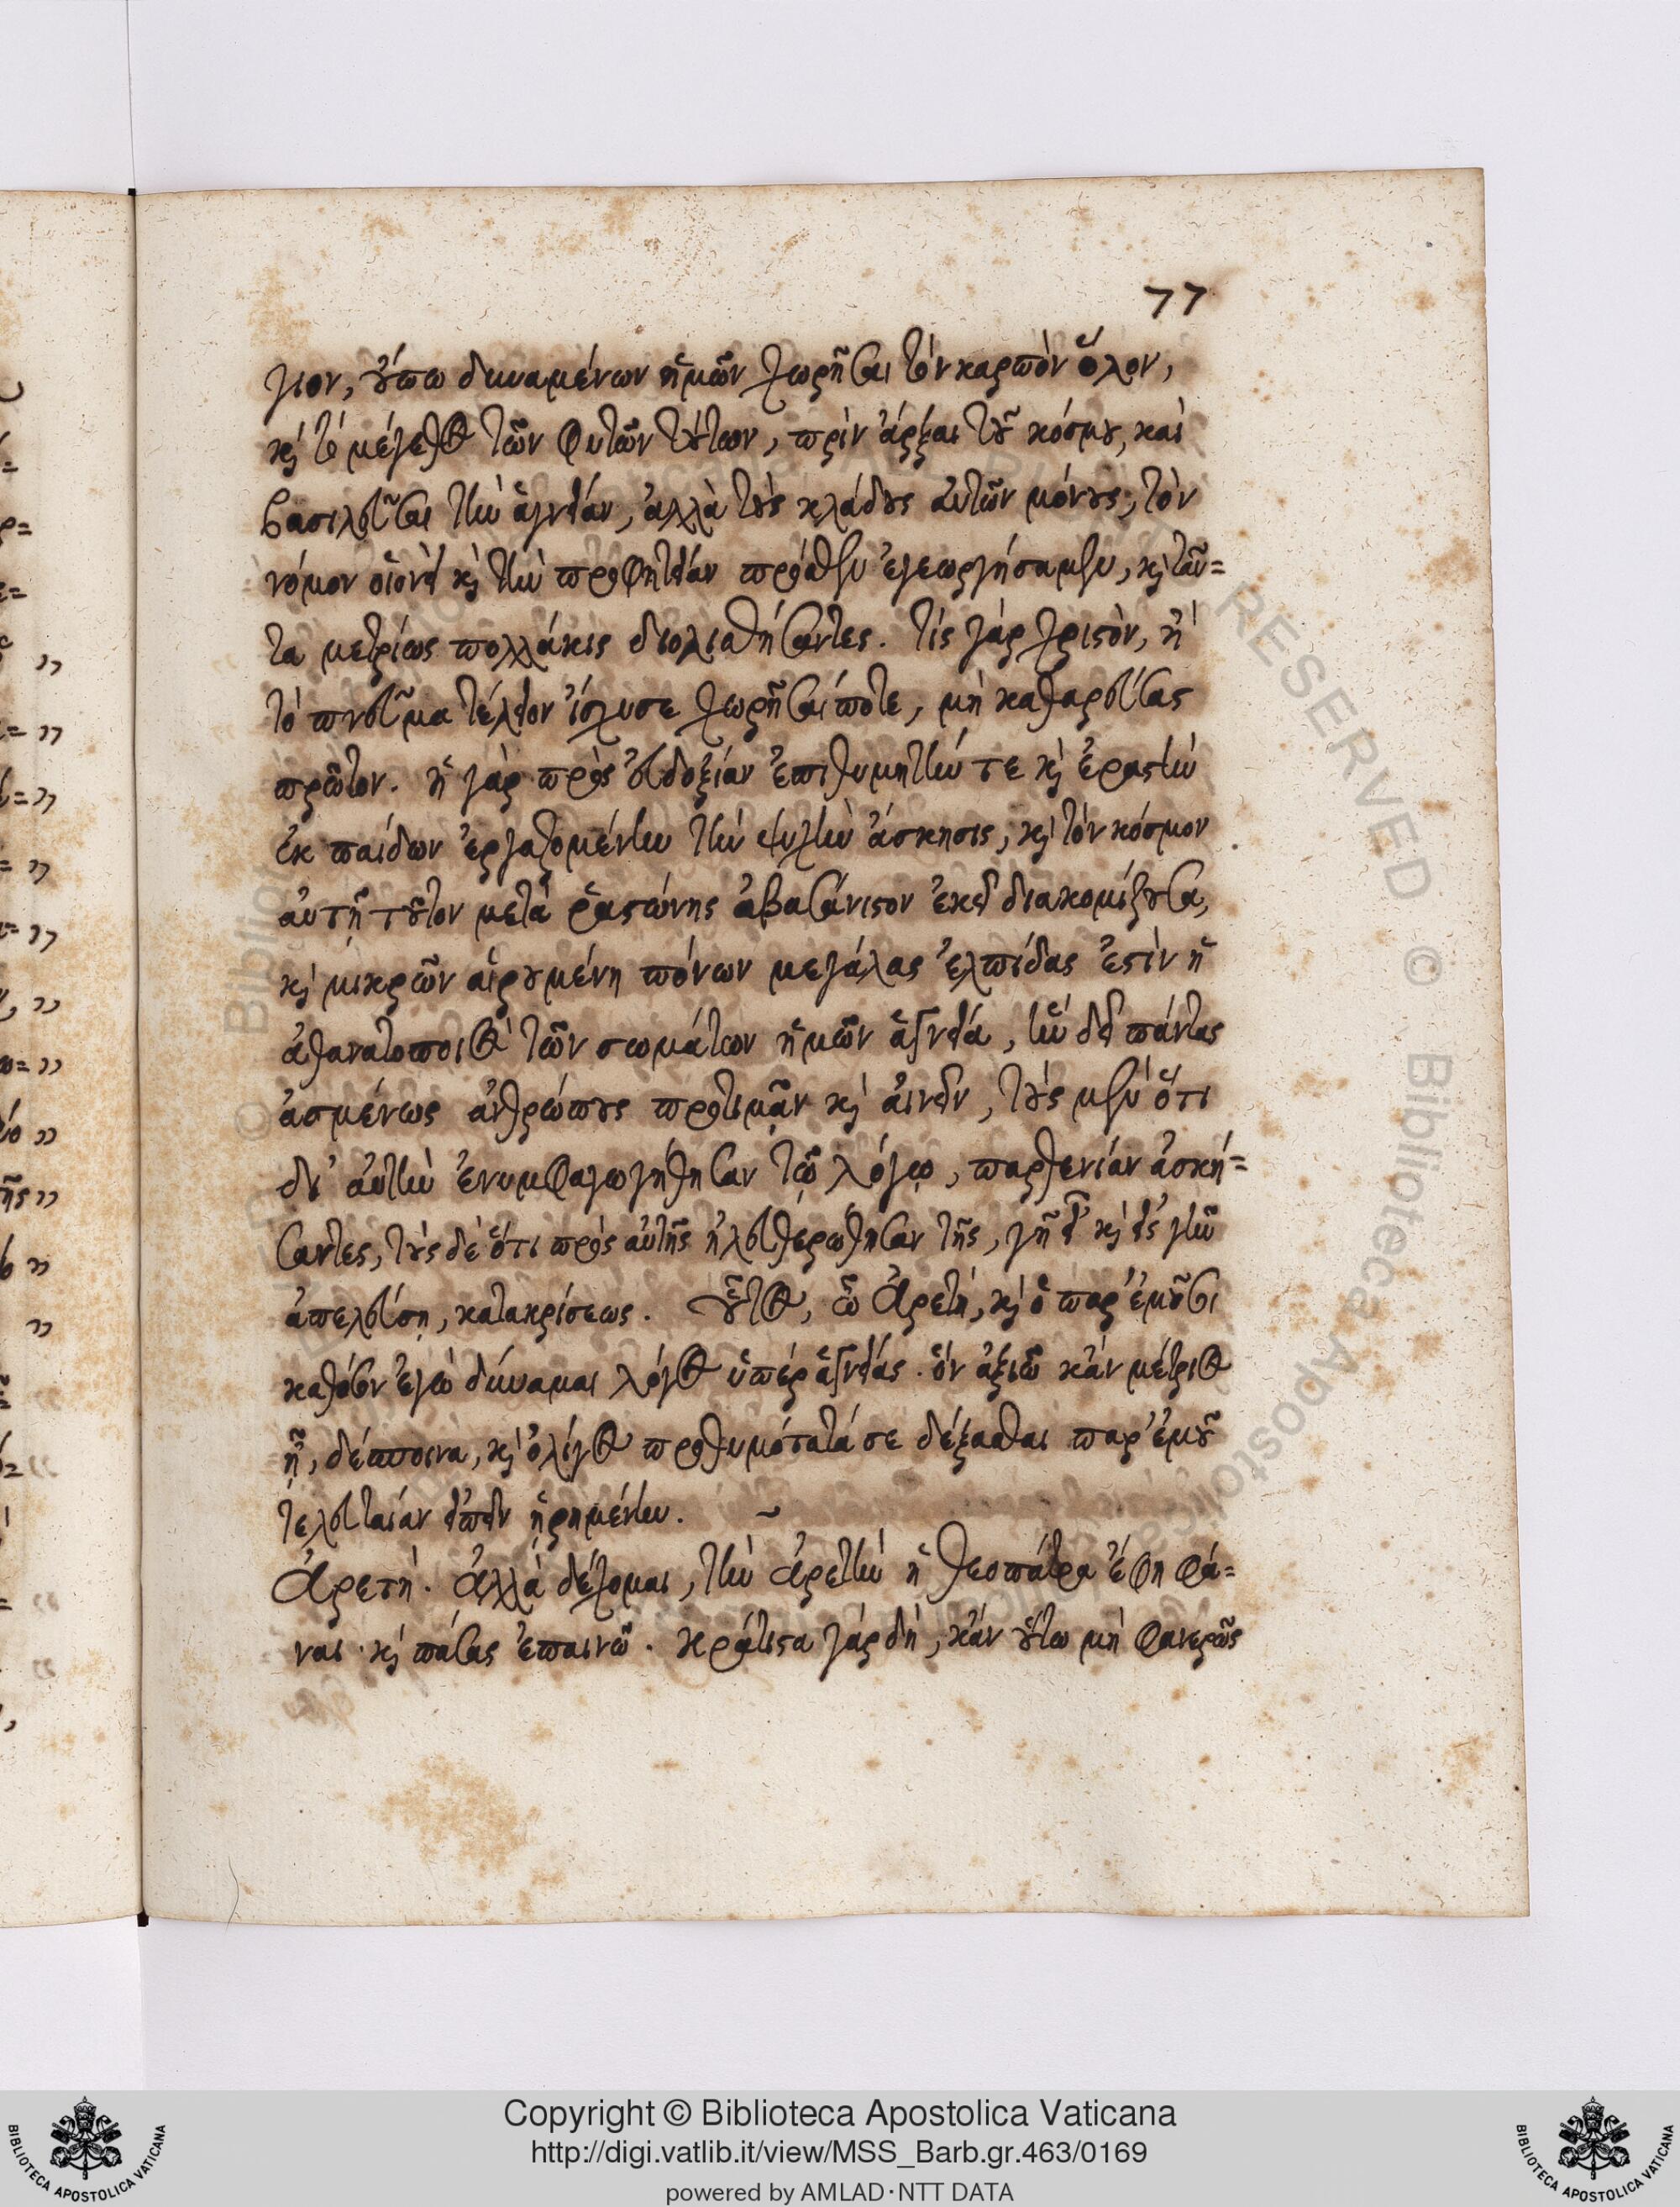 77
γιον, οὔπω δυναμένων ἡμῶν χωρῆσαι τὸν καρπὸν ὅλον,
καὶ τὸ μέγεθος τῶν φυτῶν τούτων, πρὶν ἄρξαι τοῦ κόσμου, καὶ
βασιλεῦσαι τὴν ἁγνείαν, ἀλλὰ τοὺς κλάδους αὐτῶν μόνους, τὸν
νόμον οἱονεὶ καὶ τὴν προφητείαν πρόσθεν ἐγεωργήσαμεν, καὶ ταῦ=
τα μετρίως πολλάκις διολισθήσαντες. τίς γὰρ χριστὸν, ἢ
τὸ πνεῦμα τέλειον ἴσχυσε χωρῆσαί ποτε, μὴ καθαρεύσας
πρῶτον. ἡ γὰρ πρὸς εὐδοξίαν ἐπιθυμητὴν τε καὶ ἐραστὴν
ἐκ παίδων ἐργαζομένην τὴν ψυχὴν ἄσκησις, καὶ τὸν κόσμον
αὐτῇ τοῦτον μετὰ ῥαστώνης ἀβασάνιστον ἐκεῖ διακομίζουσα,
καὶ μικρῶν αἱρουμένη πόνων μεγάλας ἐλπίδας ἐστὶν ἡ
ἀθανατοποιὸς τῶν σωμάτων ἡμῶν ἁγνεία, ἣν δεῖ πάντας
ἀσμένως ἀνθρώπους προτιμᾷν καὶ αἰνεῖν, τοὺς μὲν ὅτι
δι' αὐτὴν ἐνυμφαγωγήθησαν τῷ λόγῳ, παρθενίαν ἀσκή=
σαντες, τοὺς δὲ ὅτι πρὸς αὐτῆς ἠλευθερώθησαν τῆς, γῆ εἶ καὶ εἰς γῆν
ἀπελεύσῃ, κατακρίσεως. οὗτος, ὦ Ἀρετή, καὶ ὁ παρ' ἐμοῦ σοι
καθόσον ἐγὼ δύναμαι λόγος ὑπὲρ ἁγνείας. ὃν ἀξιῶ κἂν μέτριος
ᾖ, δέσποινα, καὶ ὀλίγος προθυμότατά σε δέξασθαι παρ' ἐμοῦ
τελευταίαν εἰπεῖν ᾑρημένην. ~
Ἀρετή. Ἀλλὰ δέχομαι, τὴν Ἀρετὴν ἡ Θεοπάτρα ἔφη φά=
ναι· καὶ πάσας ἐπαινῶ. κράτιστα γὰρ δὴ, κἂν οὕτω μὴ φανερῶς
Copyright © Biblioteca Apostolica Vaticana
http://digi.vatlib.it/view/MSS_Barb.gr.463/0169
powered by AMLAD·NTT DATA
BIBLIOTECA APOSTOLICA VATICANA
BIBLIOTECA APOSTOLICA VATICANA